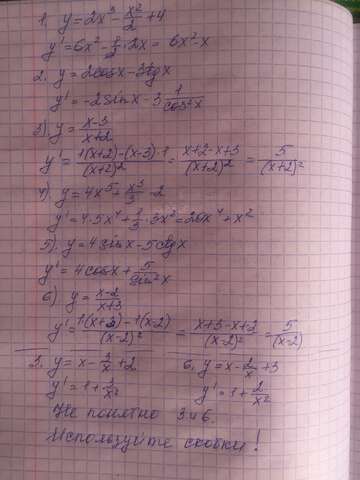 1. y = 2x³ - x²/2 + 4
y' = 6x² - 1/2 · 2x = 6x² - x
2. y = 2cosx - 3tgx
y' = -2sinx - 3 1/cos²x
3) y = x-3/x+2
y' = 1(x+2)-(x-3)·1/(x+2)² = x+2-x+3/(x+2)² = 5/(x+2)²
4) y = 4x⁵ + x³/3 - 2
y' = 4·5x⁴ + 1/3 · 3x² = 20x⁴ + x²
5). y = 4sinx - 5ctgx
y' = 4cosx + 5/sin²x
6) y = x-2/x+3
y' = 1(x+3)-1(x-2)/(x-2)² = x+3-x+2/(x-2)² = 5/(x-2)
3. y = x - 1/x + 2 6. y = x - 2/x + 3
y' = 1 + 1/x² y' = 1 + 2/x²
Не понятно 3 и 6.
Используйте скобки!